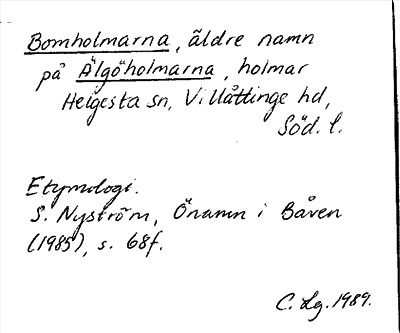 Bomholmarna, äldre namn
på Älgöholmarna, holmar
Helgesta sn, Villåttinge hd,
Söd. l.
Etymologi.
S. Nyström, Önamn i Båven
(1985), s. 68f.
C. Lg. 1989.